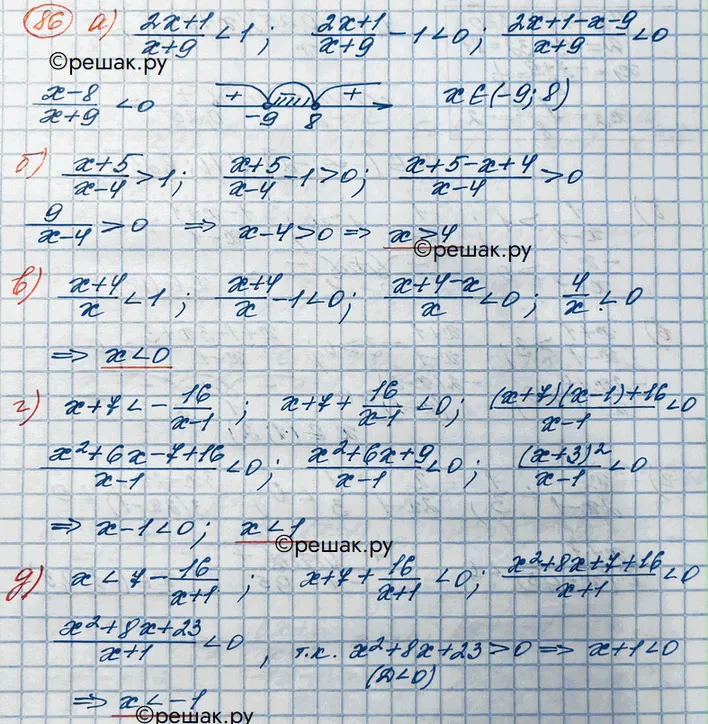 86 а) (2x+1)/(x+9) < 1; (2x+1)/(x+9) - 1 < 0; (2x+1-x-9)/(x+9) < 0
©решак.ру
(x-8)/(x+9) < 0 + -9 8 + x∈(-9; 8)
б) (x+5)/(x-4) > 1; (x+5)/(x-4) - 1 > 0; (x+5-x+4)/(x-4) > 0
9/(x-4) > 0 ⇒ x-4>0 ⇒ x>4
©решак.ру
в) (x+4)/x < 1; (x+4)/x - 1 < 0; (x+4-x)/x < 0; 4/x < 0
⇒ x<0
г) x+7 < - 16/(x-1); x+7+ 16/(x-1) < 0; ((x+7)(x-1)+16)/(x-1) < 0
(x²+6x-7+16)/(x-1) < 0; (x²+6x+9)/(x-1) < 0; (x+3)²/(x-1) < 0
⇒ x-1<0; x<1
©решак.ру
д) x < 7 - 16/(x+1); x+7+ 16/(x+1) < 0; (x²+8x+7+16)/(x+1) < 0
(x²+8x+23)/(x+1) < 0, т.к. x²+8x+23>0 ⇒ x+1<0
(D<0)
⇒ x<-1
©решак.ру